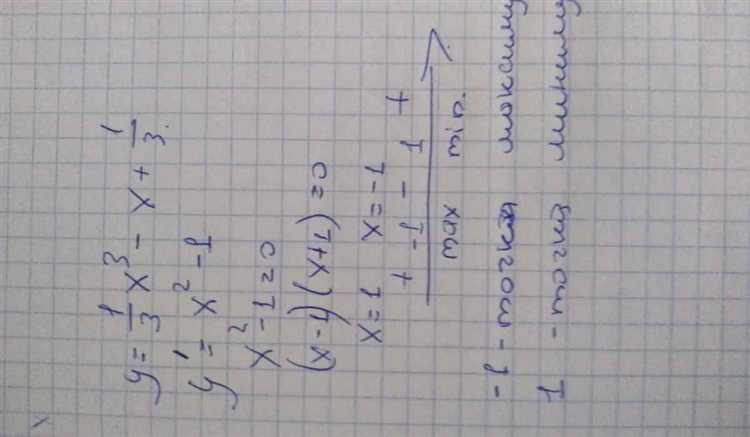 y = 1/3 x³ - x + 1/3.
y' = x² - 1
x² - 1 = 0
(x - 1)(x + 1) = 0
x = 1 x = -1
+ -1 - 1 +
max min.
-1 - точка максиму
1 - точка миниму